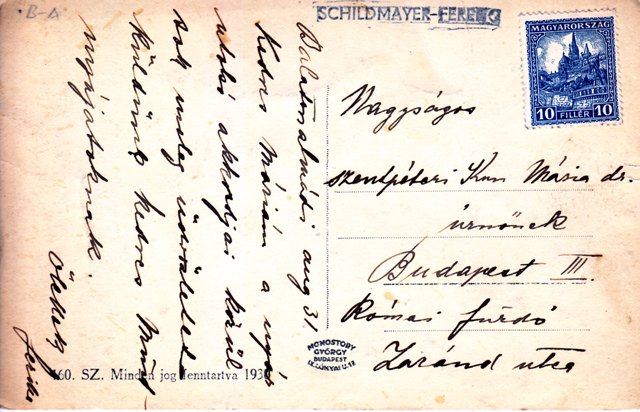 B-A
SCHILDMAYER-FERENC
MAGYARORSZÁG
10 FILLÉR 10
Balatonalmádi aug 31.
Kedves Máriám a nyár
utolsó akkordjai közül
sok meleg üdvözletet
küldünk kedves
nyájatoknak.
Ölellek
Nagyságos
szentpéteri Kun Mária dr.
úrnőnek
Budapest III.
Római fürdő
Zaránd utca
MONOSTORY
GYÖRGY
BUDAPEST
460. SZ. Minden jog fenntartva 1930